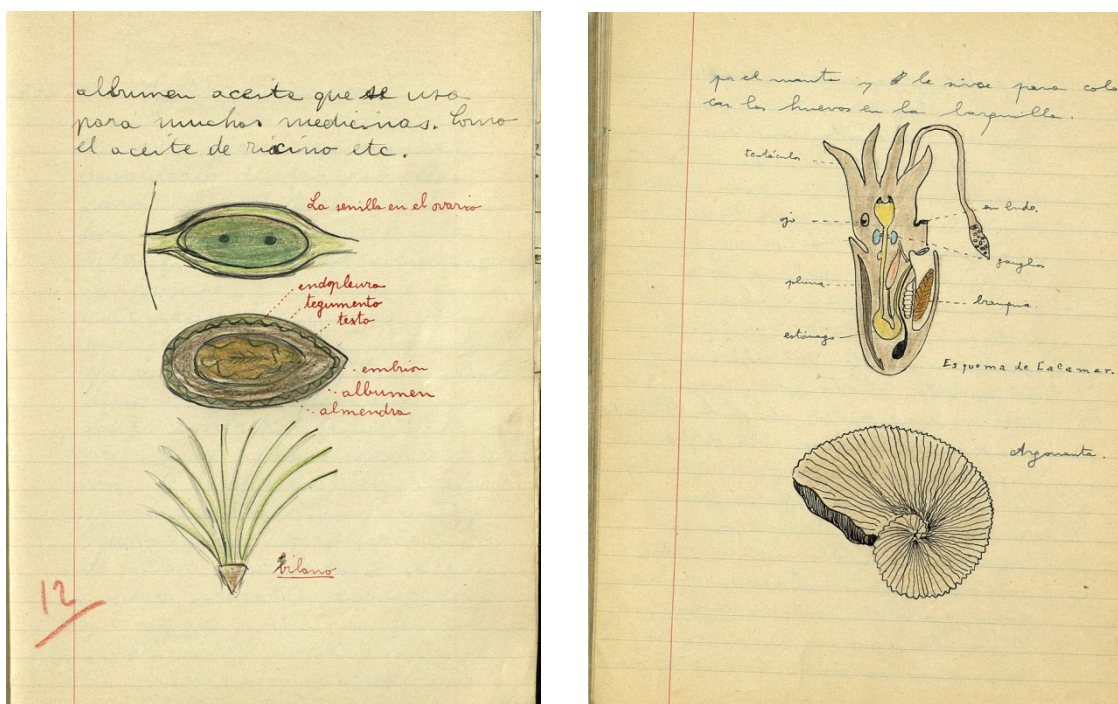 albumen aceite que se usa
para muchas medicinas. Como
el aceite de ricino etc.
La semilla en el ovario
endopleura
tegumento
testa
embrion
albumen
almendra
bilano
12
por el manto y le sirve para colo
car los huevos en la barquilla.
tentáculo
ojo
embudo.
ganglio
pluma
branquia
estómago
Esquema de Calamar.
Argonauta.